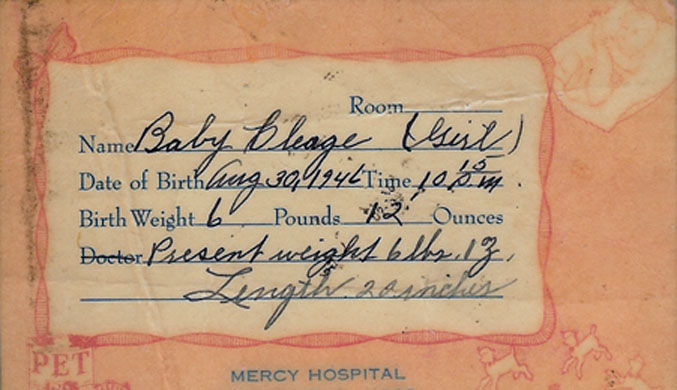 Room
Name Baby Cleage (Girl)
Date of Birth Aug 30, 1946 Time 10 15 P.m.
Birth Weight 6 Pounds 12 Ounces
Doctor Present weight 6 lbs. 1 z.
Length 20 inches
PET
MERCY HOSPITAL